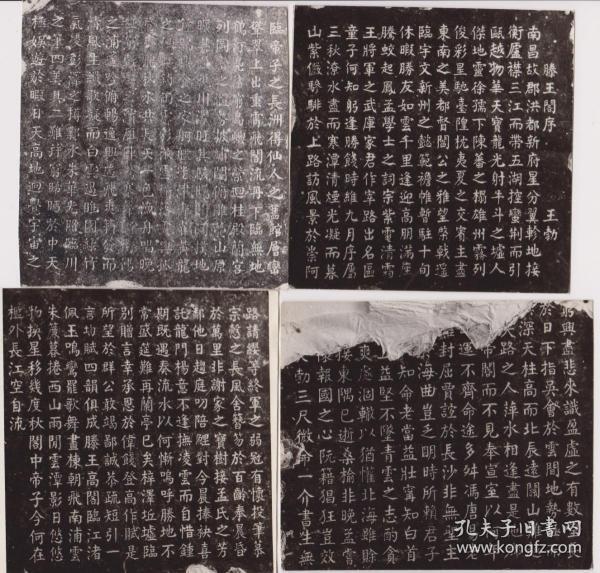 滕王閣序 王勃
南昌故郡洪都新府星分翼軫地接
衡廬襟三江而帶五湖控蠻荊而引
甌越物華天寶龍光射牛斗之墟人
傑地靈徐孺下陳蕃之榻雄州霧列
俊彩星馳臺隍枕夷夏之交賓主盡
東南之美都督閻公之雅望棨戟遙
臨宇文新州之懿範襜帷暫駐十旬
休暇勝友如雲千里逢迎高朋滿座
騰蛟起鳳孟學士之詞宗紫電清霜
王將軍之武庫家君作宰路出名區
童子何知躬逢勝餞時維九月序屬
三秋潦水盡而寒潭清煙光凝而暮
山紫儼驂騑於上路訪風景於崇阿
臨帝子之長洲得仙人之舊館層巒
聳翠上出重霄飛閣流丹下臨無地
鶴汀鳧渚窮島嶼之縈迴桂殿蘭宮
列岡巒之體勢披繡闥俯雕甍山原
曠其盈視川澤盱其駭矚閭閻撲地
之家舸艦迷津青雀黃龍
水共長天一色漁舟唱晚
之浦遙吟俯暢逸興遄飛爽籟發而
清風生纖歌凝而白雲遏睢園綠竹
氣凌彭澤之樽鄴水朱華光照臨川
之筆四美具二難并窮睇眄於中天
極娛遊於暇日天高地迥覺宇宙之
興盡悲來識盈虛之有數
於日下指吳會於雲間地勢極
深天柱高而北辰遠關山難
失路之人萍水相逢盡是
帝閽而不見奉宣室以何年
運不齊命途多舛馮唐易老
封屈賈誼於長沙非無聖主
海曲豈乏明時所賴君子
知命老當益壯寧知白首
益堅不墜青雲之志酌貪
爽處涸轍以猶懽北海雖賒
接東隅已逝桑榆非晚孟嘗
懷報國之心阮籍猖狂豈效
勃三尺微命一介書生無
路請纓等終軍之弱冠有懷投筆慕
宗愨之長風舍簪笏於百齡奉晨昏
於萬里非謝家之寶樹接孟氏之芳
鄰他日趨庭叨陪鯉對今晨捧袂喜
託龍門楊意不逢撫凌雲而自惜鍾
期既遇奏流水以何慚嗚呼勝地不
常盛筵難再蘭亭已矣梓澤近墟臨
別贈言幸承恩於偉餞登高作賦是
所望於群公敢竭鄙誠恭疏短引一
言均賦四韻俱成滕王高閣臨江渚
佩玉鳴鸞罷歌舞畫棟朝飛南浦雲
朱簾暮捲西山雨閒雲潭影日悠悠
物換星移幾度秋閣中帝子今何在
檻外長江空自流
孔夫子旧书网
www.kongfz.com